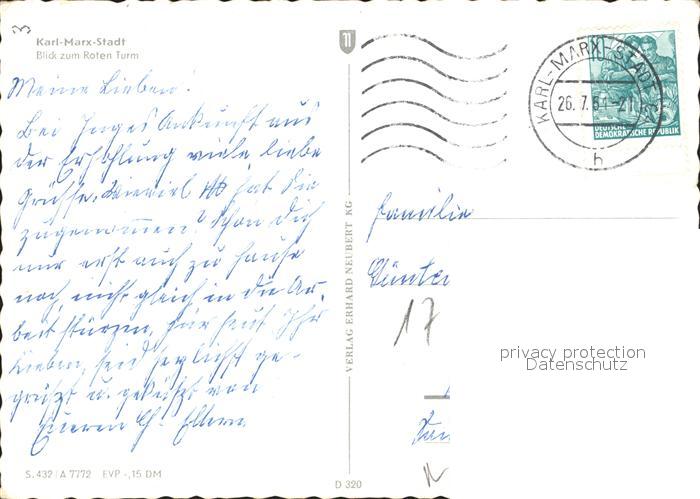 3
Karl-Marx-Stadt
Blick zum Roten Turm
Meine Lieben!
Bei Inges Ankunft aus
der Erholung viele liebe
Grüße. Wieviel hat sie
zugenommen? Schon Dich
nur erst auch zu Hause
noch, nicht gleich in die Ar-
beit stürzen. Für heut Ihr
Lieben, seid herzlichst ge-
grüßt u. geküßt von
Eueren Eltern
S. 432 / A 7772 EVP -,15 DM
VERLAG ERHARD NEUBERT KG
D 320
KARL-MARX-STADT
26. 7. 61-21
h
10
DEUTSCHE
DEMOKRATISCHE REPUBLIK
Familie
Günte
17
privacy protection
Datenschutz